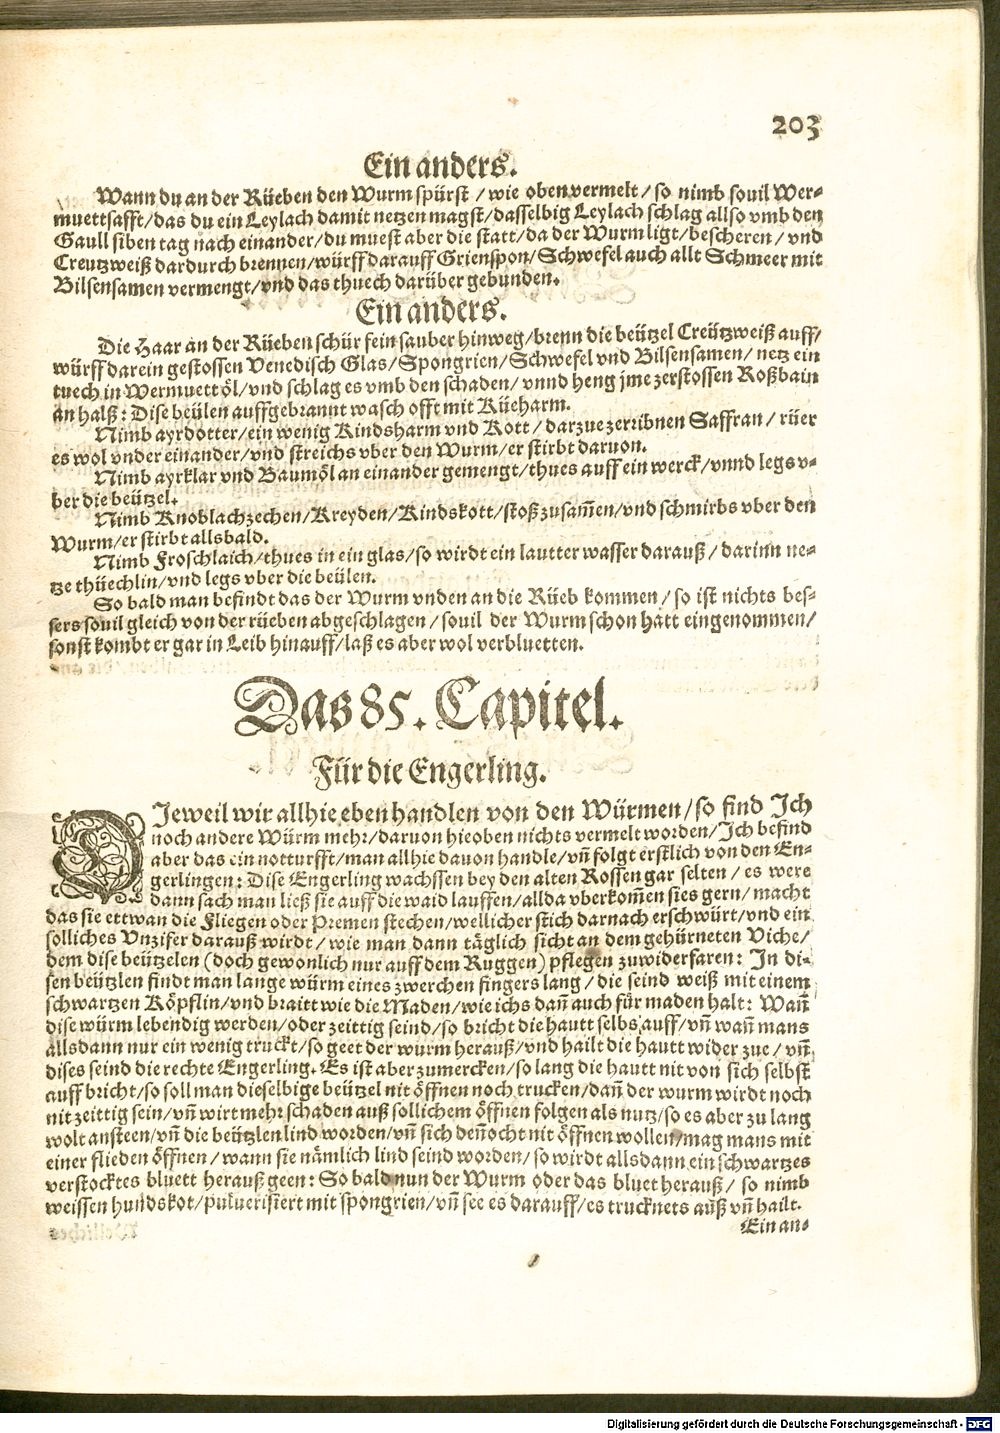 203
Ein anders.
Wann du an der Rüeben den Wurm spürst / wie oben vermelt / so nimb souil Wer-
muettsafft/das du ein Leylach damit netzen magst/dasselbig Leylach schlag allso vmb den
Gaull siben tag nach einander/du muest aber die statt/da der Wurm ligt/bescheren / vnd
Creutzweiß dardurch brennen/würff darauff Grienspon/Schwefel auch allt Schmeer mit
Bilsensamen vermengt/vnd das thuech darüber gebunden.
Ein anders.
Die Haar an der Rüeben schür fein sauber hinweg/brenn die beützel Creützweiß auff/
würff darein gestossen Venedisch Glas/Spongrien/Schwefel vnd Bilsensamen/ netz ein
tuech in Wermuett öl/vnd schlag es vmb den schaden/ vnnd heng jme zerstossen Roßbain
an halß: Dise beülen auffgebrannt wasch offt mit Küeharm.
Nimb ayrdotter/ein wenig Kindsharm vnd Kott / darzue zerribnen Saffran / rüer
es wol vnder einander/vnd streichs vber den Wurm/er stirbt daruon.
Nimb ayrklar vnd Baumöl an einander gemengt/thues auff ein werck/vnnd legs v-
ber die beützel.
Nimb Knoblachzechen/Kreyden/Kindskott/stoß zusam̄en/vnd schmirbs vber den
Wurm/er stirbt allsbald.
Nimb Froschlaich/thues in ein glas/so wirdt ein lautter wasser darauß / darinn ne-
tze thüechlin/vnd legs vber die beülen.
So bald man befindt das der Wurm vnden an die Rüeb kommen / so ist nichts bes-
sers souil gleich von der rüeben abgeschlagen / souil der Wurm schon hatt eingenommen/
sonst kombt er gar in Leib hinauff/laß es aber wol verbluetten.
Das 85. Capitel.
Für die Engerling.
DIeweil wir allhie eben handlen von den Würmen/so find Ich
noch andere Würm mehr/daruon hieoben nichts vermelt worden/Ich befind
aber das ein notturfft/man allhie dauon handle/vn̄ folgt erstlich von den En-
gerlingen: Dise Engerling wachssen bey den alten Rossen gar selten / es were
dann sach man ließ sie auff die waid lauffen/allda vberkom̄en sies gern/ macht
das sie ettwan die Fliegen oder Premen stechen/wellicher stich darnach erschwürt/vnd ein
solliches Vnzifer darauß wirdt / wie man dann täglich sicht an dem gehürneten Viche/
dem dise beützelen (doch gewonlich nur auff dem Ruggen) pflegen zuwiderfaren: In di-
sen beützlen findt man lange würm eines zwerchen fingers lang / die seind weiß mit einem
schwartzen Köpflin/vnd braitt wie die Maden/wie ichs dan̄ auch für maden halt: Wan̄
dise würm lebendig werden/oder zeittig seind/so bricht die hautt selbs auff/vn̄ wan̄ mans
allsdann nur ein wenig truckt/so geet der wurm herauß/vnd hailt die hautt wider zue / vn̄
dises seind die rechte Engerling. Es ist aber zumercken/so lang die hautt nit von sich selbst
auff bricht/so soll man dieselbige beützel nit öffnen noch trucken/dan̄ der wurm wirdt noch
nit zeittig sein/vn̄ wirt mehr schaden auß sollichem öffnen folgen als nutz/so es aber zu lang
wolt ansteen/vn̄ die beützlen lind worden/vn̄ sich den̄ocht nit öffnen wollen/mag mans mit
einer flieden öffnen / wann sie nämlich lind seind worden/so wirdt allsdann ein schwartzes
verstocktes bluett herauß geen: So bald nun der Wurm oder das bluet herauß / so nimb
weissen hundskot/puluerisiert mit spongrien/vn̄ see es darauff/es trucknets auß vn̄ hailt.
Ein an-
Digitalisierung gefördert durch die Deutsche Forschungsgemeinschaft - DFG